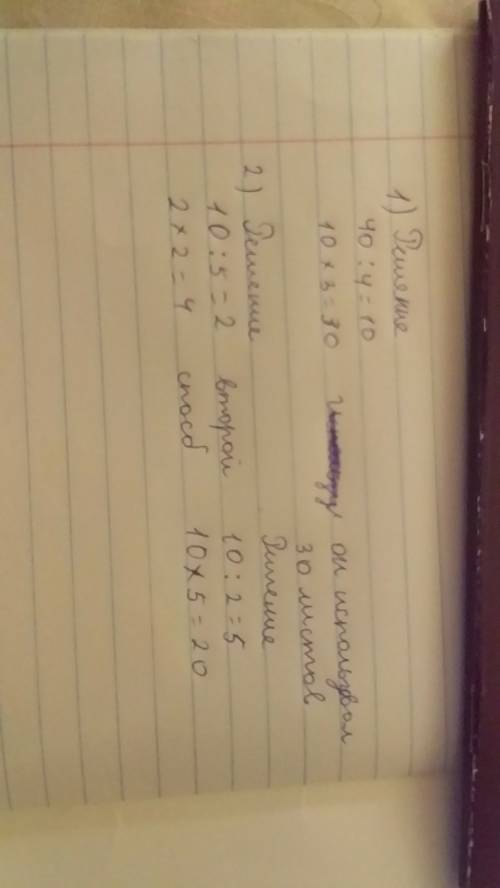 1) Решение
40 : 4 = 10
10 × 3 = 30 он использвал
30 листов
2) Решение Решение
10 : 5 = 2 второй 10 : 2 = 5
2 × 2 = 4 способ 10 × 5 = 20